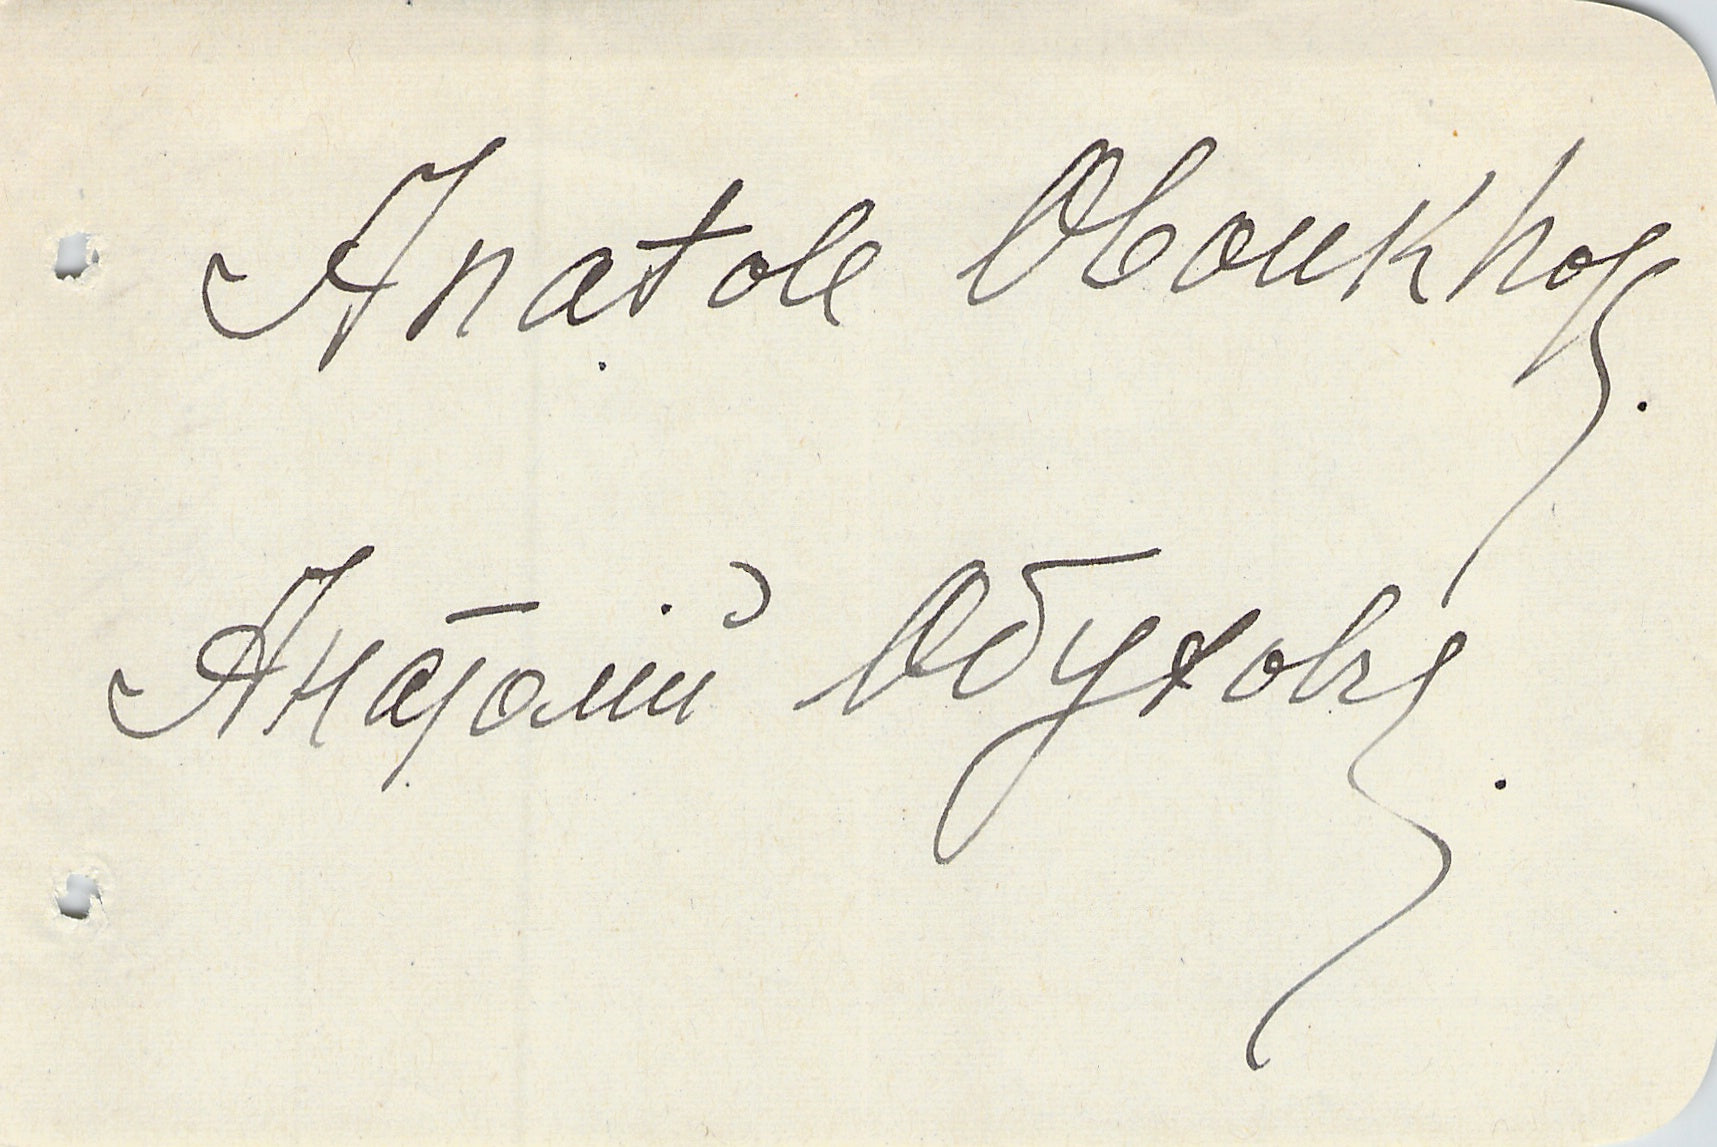 Anatole Oboukhoff.
Анатолій Обуховъ.